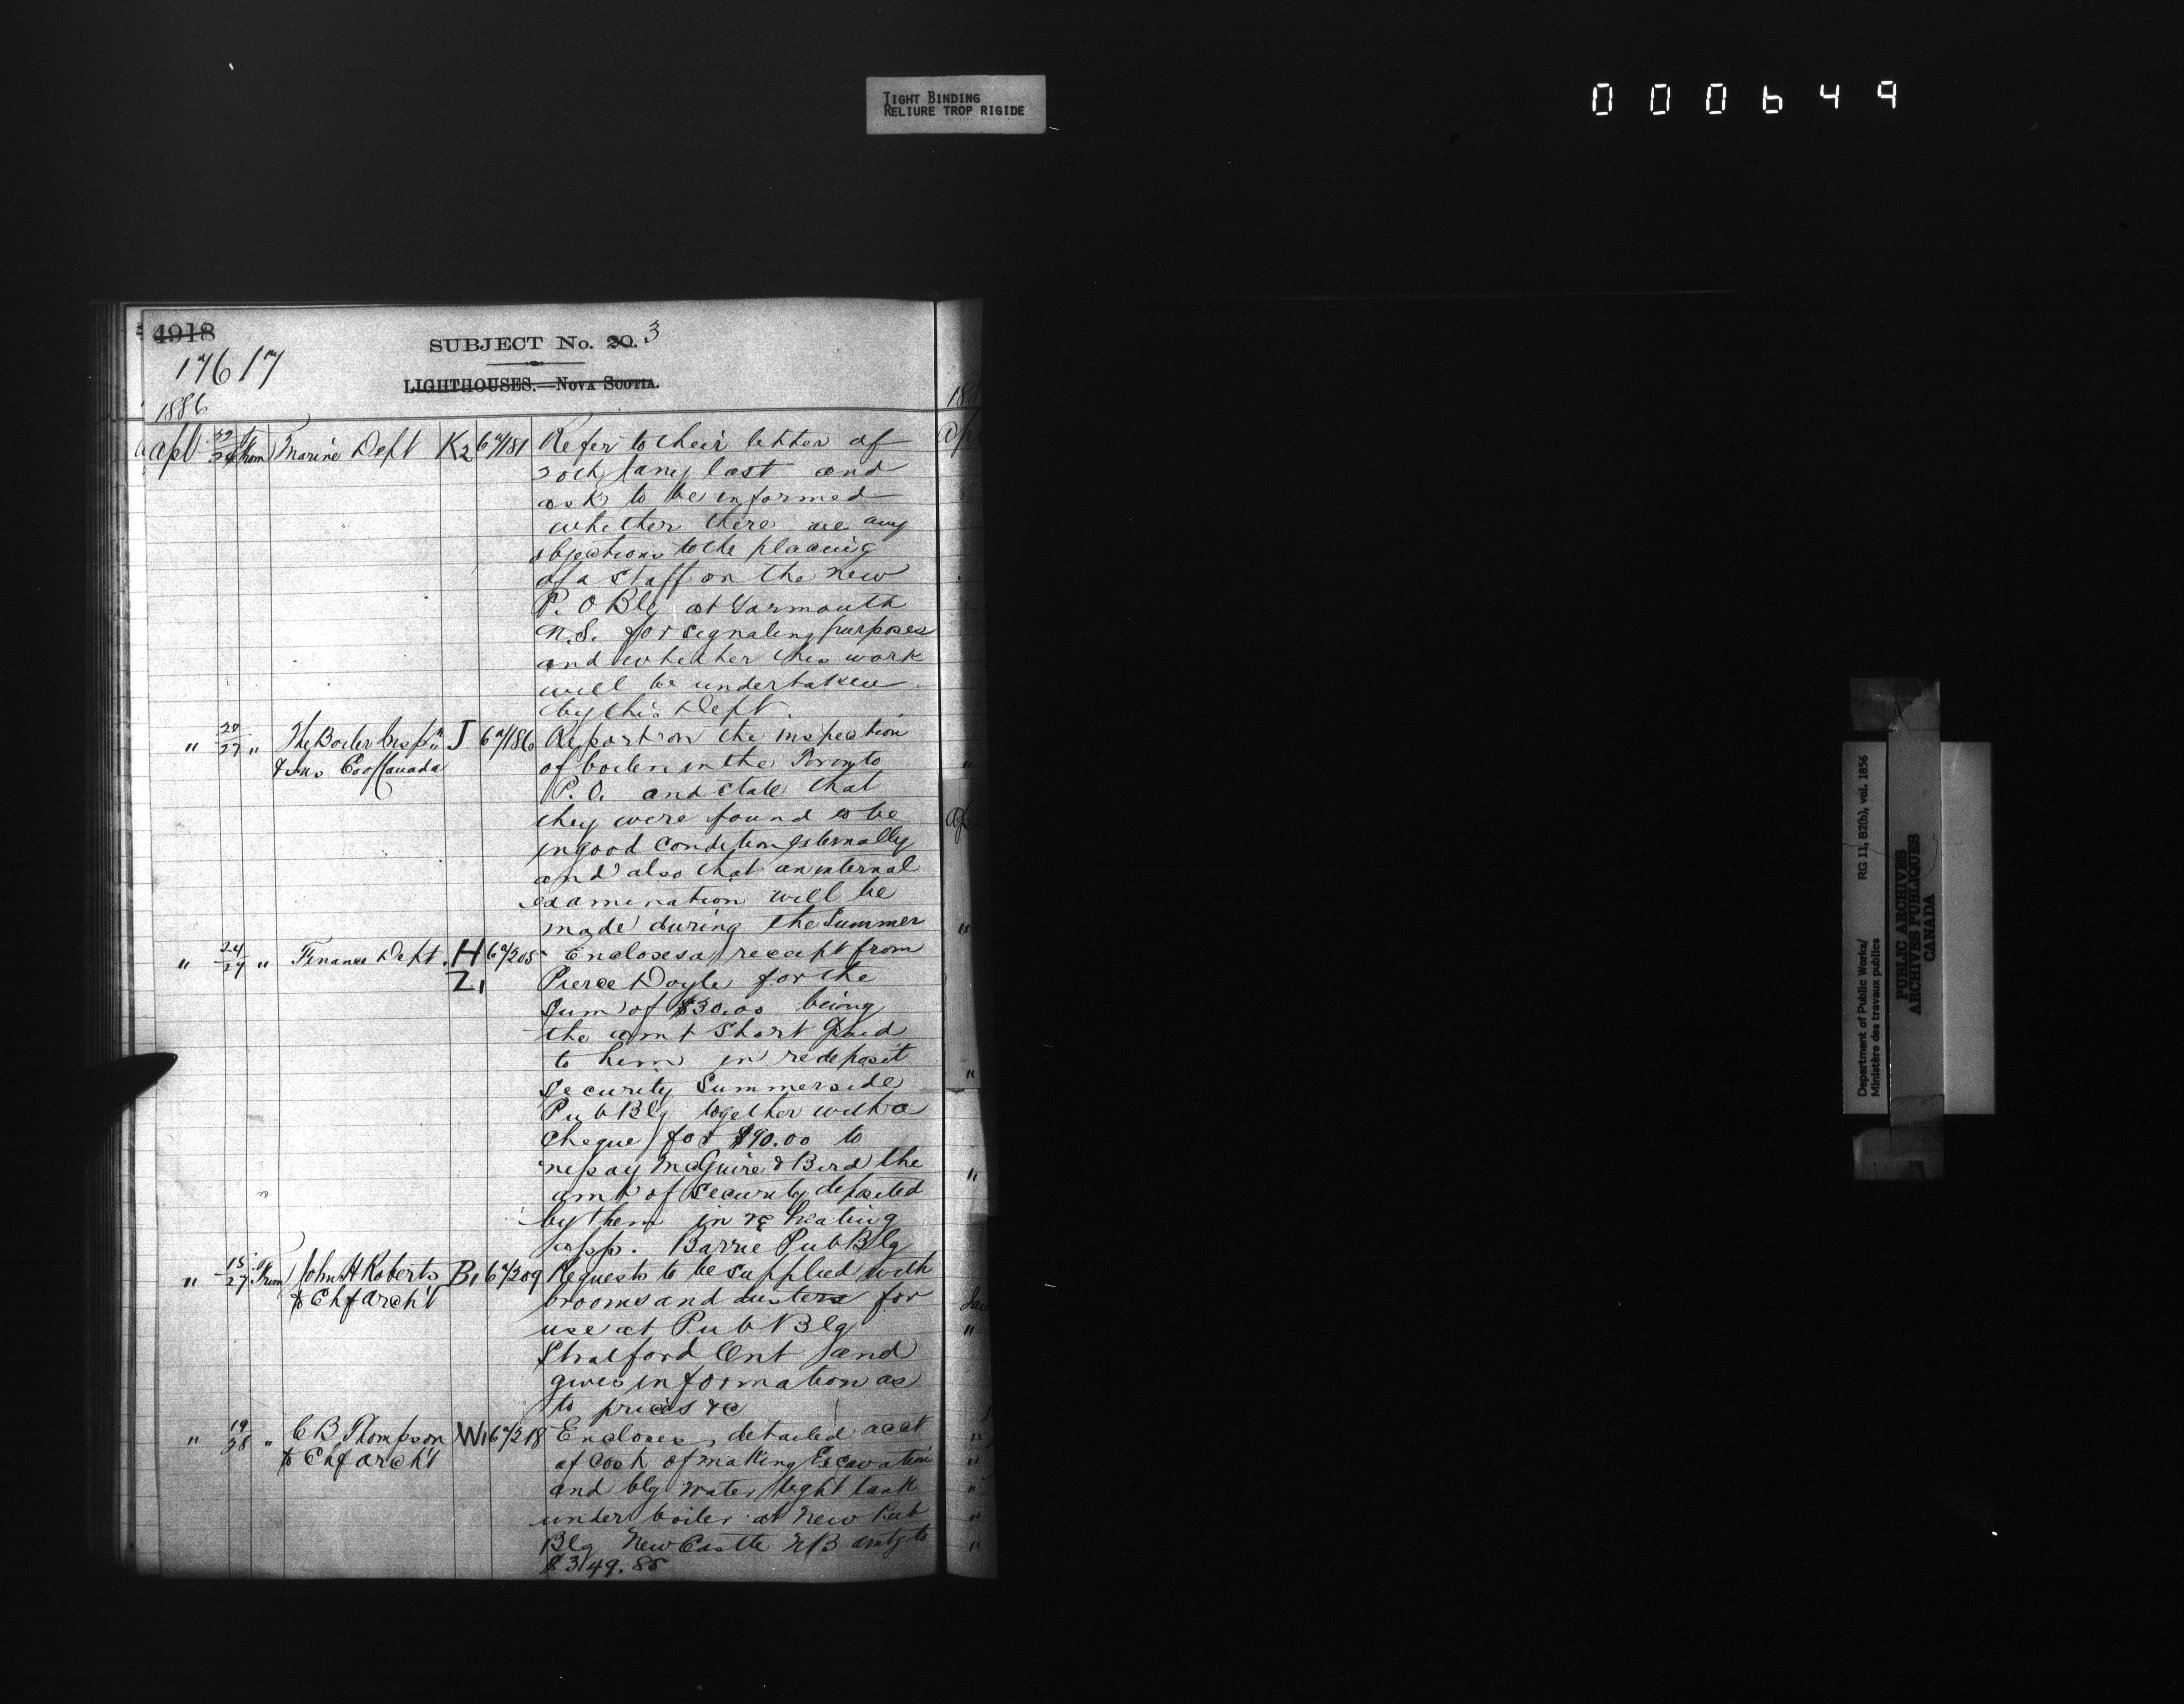 TIGHT BINDING
RELIURE TROP RIGIDE
000649
4918
17617
SUBJECT No. 20. 3
LIGHTHOUSES.—NOVA SCOTIA.
1886
Apl 24 From Marine Dept K2 67181 Refer to their letter of
20th Jany last and
ask to be informed
whether there are any
objections to the placing
of a staff on the new
P. O Blg at Yarmouth
N.S. for signaling purposes
and whether this work
will be undertaken
by this Dept.
" 20/27 " The Boiler Insp'n J 67186 Report on the inspection
& Ins Co of Canada of boilers in the Toronto
P. O. and state that
they were found to be
in good condition externally
and also that an internal
examination will be
made during the Summer
" 24/27 " Finance Dept. H 67205 Encloses a receipt from
Z1 Pierce Doyle for the
Sum of $30.00 being
the amt short paid
to him in re deposit
Security Summerside
Pub Blg together with a
Cheque for $90.00 to
repay McGuire & Bird the
amt of Security deposited
by them in re heating
app. Barrie Pub Blg
" 15/27 From John H Roberts B1 67209 Requests to be supplied with
to Chf Arch't brooms and dusters for
use at Pub Blg
Stratford Ont and
gives information as
to prices &c
" 19/28 " C B Thompson W1 67218 Encloses detailed acct
to Chf Arch't of Cost of making Excavation
and blg water tight tank
under boiler at New Pub
Blg New Castle NB amtg to
$349.85
Department of Public Works/
Ministère des travaux publics
RG 11, B2(b), vol. 1856
PUBLIC ARCHIVES
ARCHIVES PUBLIQUES
CANADA